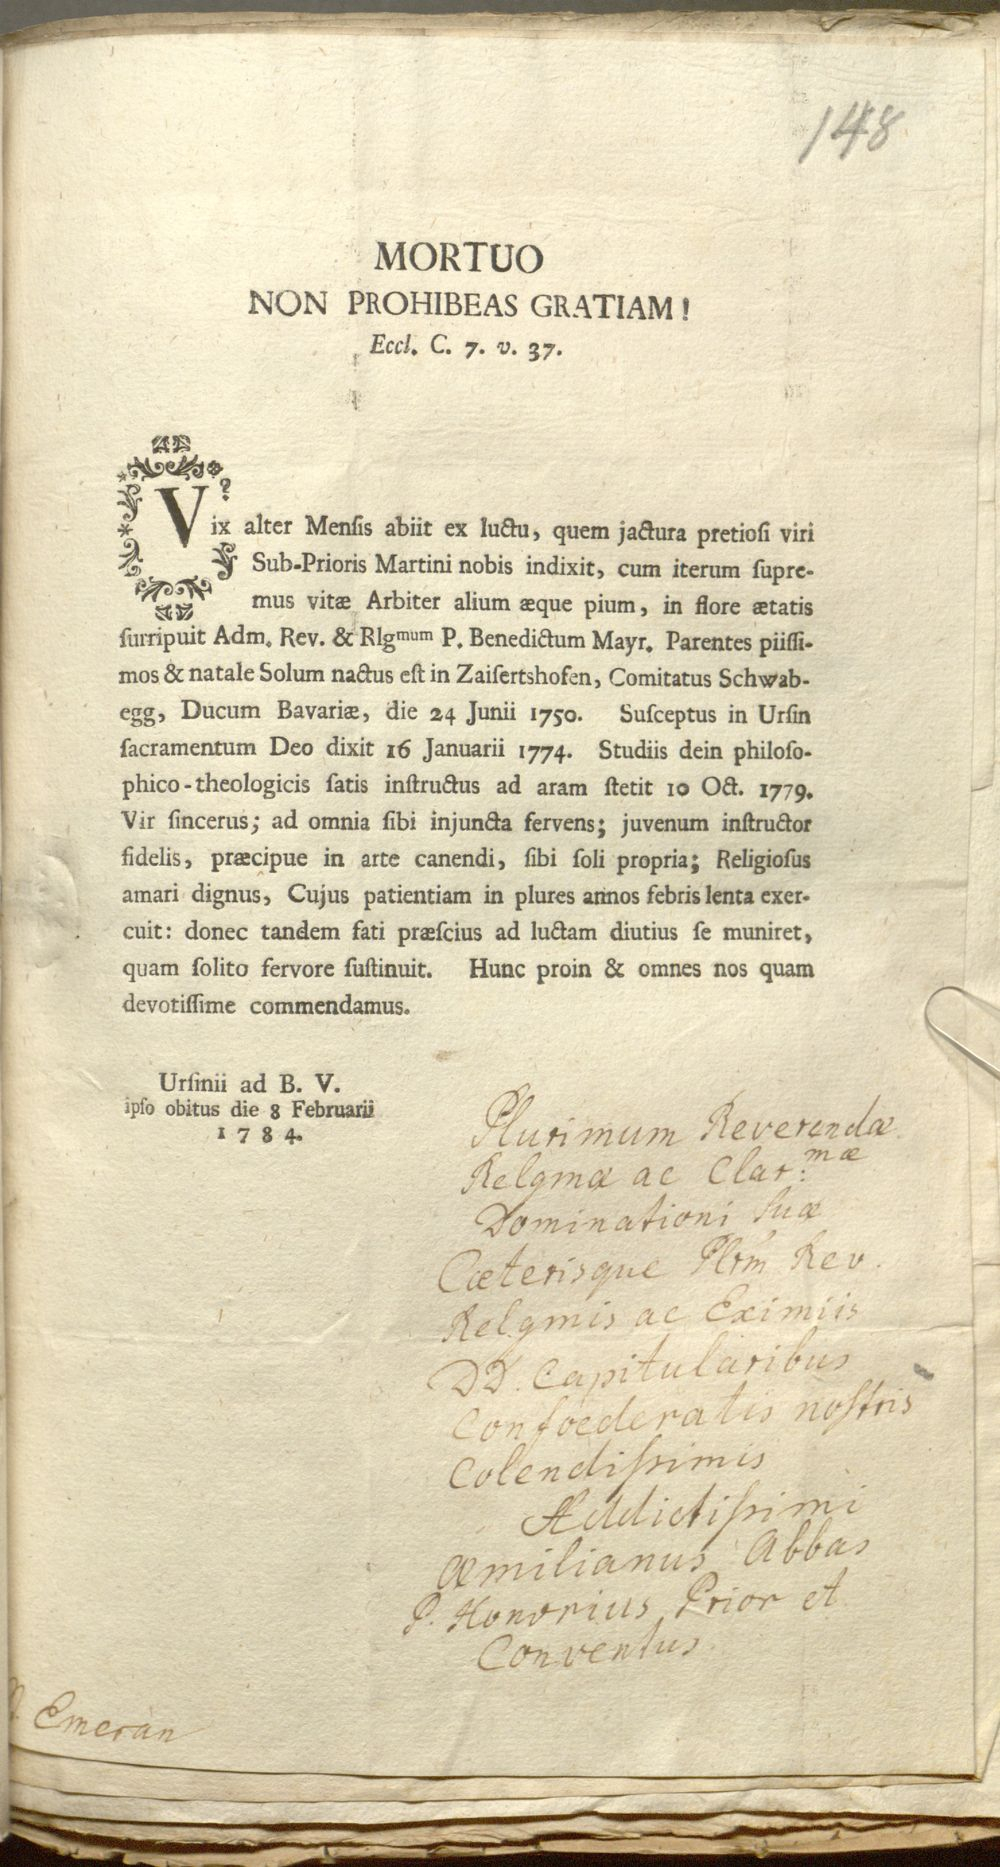 148
MORTUO
NON PROHIBEAS GRATIAM!
Eccl. C. 7. v. 37.
Vix alter Menſis abiit ex luctu, quem jactura pretioſi viri
Sub-Prioris Martini nobis indixit, cum iterum ſupre-
mus vitæ Arbiter alium æque pium, in flore ætatis
ſurripuit Adm. Rev. & Rlgmum P. Benedictum Mayr. Parentes piiſſi-
mos & natale Solum nactus eſt in Zaiſertshofen, Comitatus Schwab-
egg, Ducum Bavariæ, die 24 Junii 1750. Suſceptus in Urſin
ſacramentum Deo dixit 16 Januarii 1774. Studiis dein philoſo-
phico-theologicis ſatis inſtructus ad aram ſtetit 10 Oct. 1779.
Vir ſincerus; ad omnia ſibi injuncta fervens; juvenum inſtructor
fidelis, præcipue in arte canendi, ſibi ſoli propria; Religioſus
amari dignus, Cujus patientiam in plures annos febris lenta exer-
cuit: donec tandem fati præſcius ad luctam diutius ſe muniret,
quam ſolito fervore ſuſtinuit. Hunc proin & omnes nos quam
devotiſſime commendamus.
Urſinii ad B. V.
ipſo obitus die 8 Februarii
1784.
Plurimum Reverendæ
Relgmæ ac Clar:mæ
Dominationi Suæ
Cæterisque Plrm Rev.
Relgmis ac Eximiis
DD. Capitularibus
Confoederatis noſtris
Colendiſsimis
Addictiſsimi
Æmilianus Abbas
P. Honorius Prior et
Conventus.
Emeran